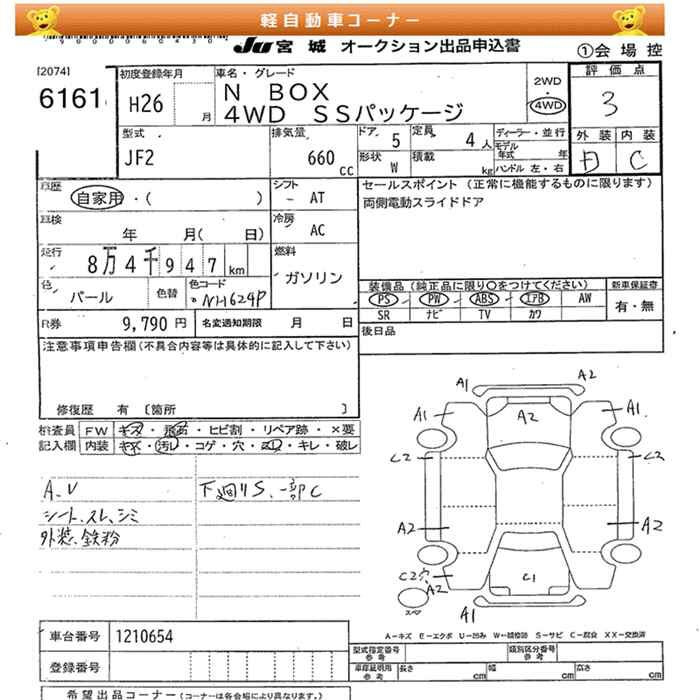 軽自動車コーナー
JU 宮城 オークション出品申込書
①会場控
[2074]
6161
初度登録年月
H26 月
車名・グレード
N BOX
4WD SSパッケージ
2WD
・
4WD
評価点
3
外装 内装
D C
型式
JF2
排気量
660 cc
ドア 5
定員 4 人
形状 W
積載 kg
ディーラー・並行
モデル年式 年
ハンドル 左・右
車歴
自家用・( )
シフト
AT
セールスポイント (正常に機能するものに限ります)
両側電動スライドドア
車検
年 月( 日)
冷房
AC
走行
8万4千947km
燃料
ガソリン
色
パール
色替
色コード
NH624P
装備品 (純正品に限り○をつけてください)
PS PW ABS エアB AW
SR ナビ TV カワ
新車保証書
有・無
R券 9,790 円
名変通知期限 月 日
後日品
注意事項申告欄 (不具合内容等は具体的に記入して下さい)
修復歴 有 〔箇所 〕
検査員
記入欄
FW キズ・飛石・ヒビ割・リペア跡・×要
内装 キズ・汚れ・コゲ・穴・スレ・キレ・破レ
A、U
シート、スレ、シミ
外装、鉄粉
下廻りS、一部C
A1 A2
A1 A2 A1
C2 C2
A2 A2
C2穴 A2
C1
スペア
A1
A－キズ E－エクボ U－凹み W－補修跡 S－サビ C－腐食 XX－交換済
車台番号 1210654
登録番号
型式指定番号 参考
類別区分番号 参考
車庫証明用 参考
長さ cm 幅 cm 高さ cm
希望出品コーナー (コーナーは各会場により異なります。)